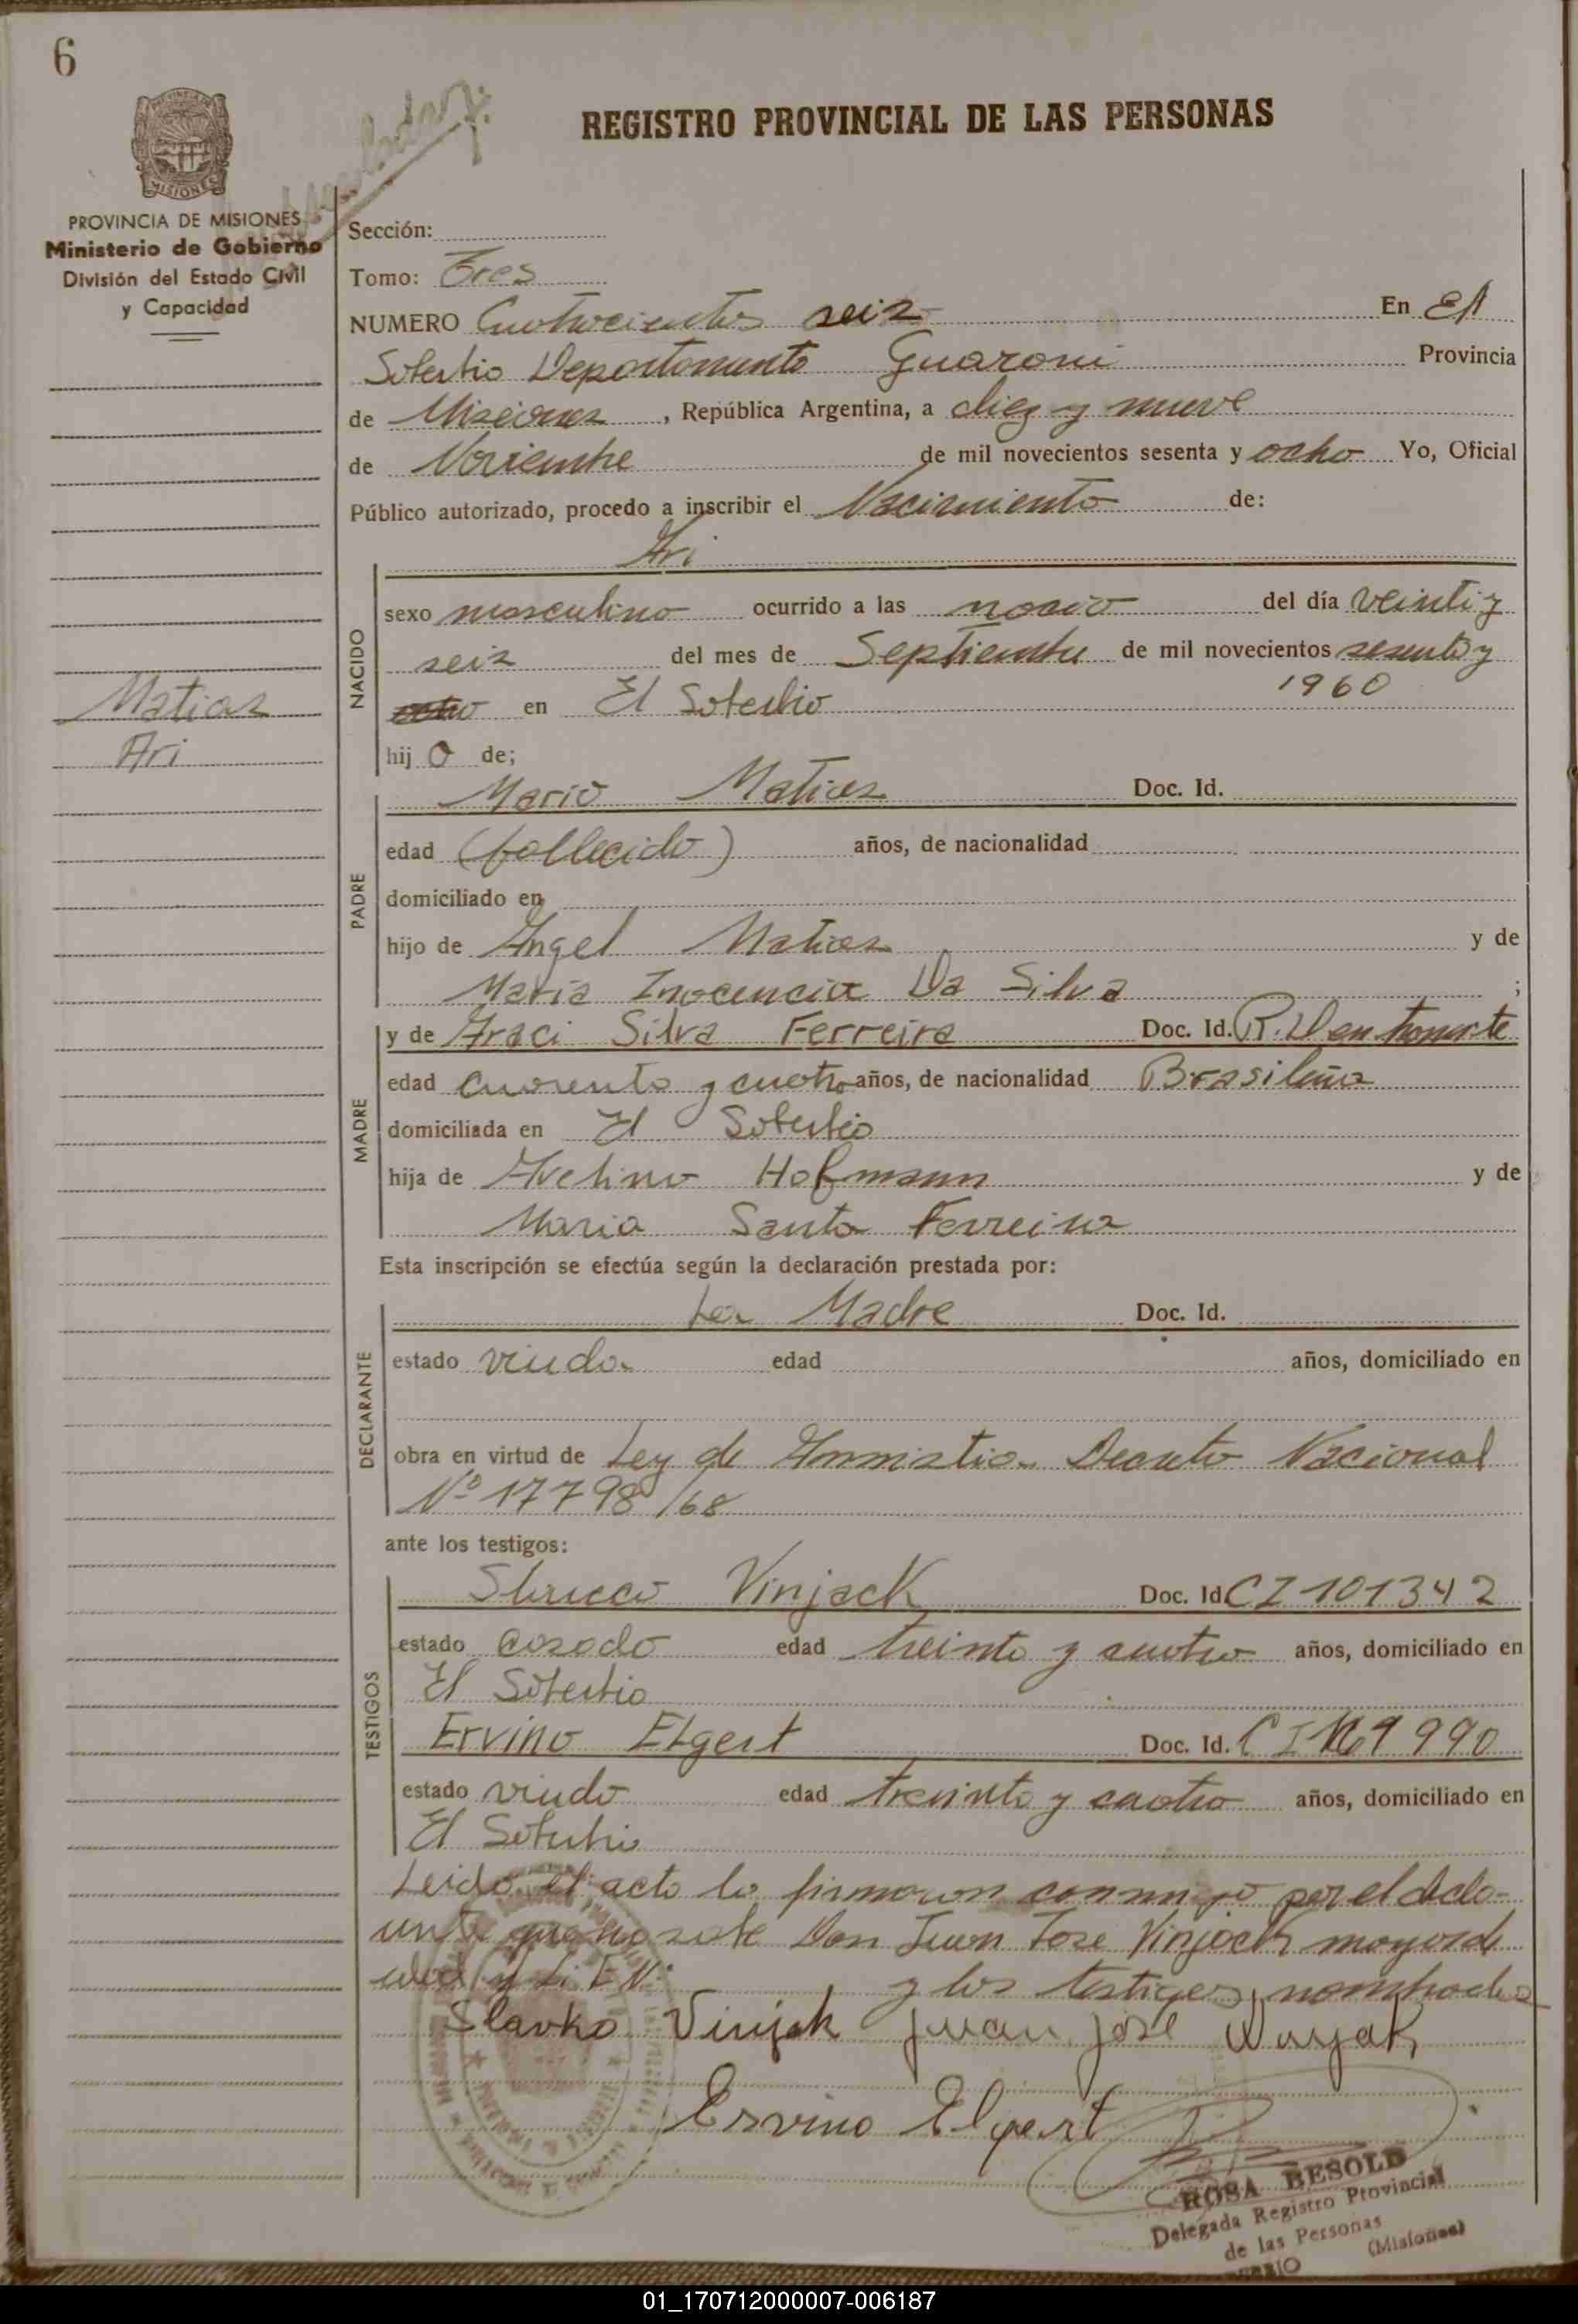 6
REGISTRO PROVINCIAL DE LAS PERSONAS
PROVINCIA DE MISIONES
Ministerio de Gobierno
División del Estado Civil
y Capacidad
Sección:
Tomo: Tres
NUMERO Cuatrocientos seis En El
Soberbio Departamento Guarani Provincia
de Misiones, República Argentina, a diez y nueve
de Noviembre de mil novecientos sesenta y ocho Yo, Oficial
Público autorizado, procedo a inscribir el Nacimiento de:
Ari
NACIDO
sexo masculino ocurrido a las del día veinti y
seis del mes de Septiembre de mil novecientos sesenta y
1960
ocho en El Soberbio
Matias
Ari
hijo de;
PADRE
Mario Matias Doc. Id.
edad (fallecido) años, de nacionalidad
domiciliado en
hijo de Angel Matias y de
Maria Inocencia Da Silva ;
MADRE
y de Araci Silva Ferreira Doc. Id. R.
edad cuarenta y cuatro años, de nacionalidad Brasileña
domiciliada en El Soberbio
hija de Avelino Hofmann y de
Maria Santa Ferreira
Esta inscripción se efectúa según la declaración prestada por:
DECLARANTE
La Madre Doc. Id.
estado viuda edad años, domiciliado en
obra en virtud de Ley de Amnistia Decreto Nacional
Nº 17798/68
ante los testigos:
TESTIGOS
Slavco Vinjack Doc. Id CI 101342
estado casado edad treinta y cuatro años, domiciliado en
El Soberbio
Ervino Elgert Doc. Id. CI 990
estado viudo edad treinta y cuatro años, domiciliado en
El Soberbio
Leida el acta la firmaron conmigo por el decla-
que no sabe Don Juan Jose Vinjack mayor de
y los testigos nombrados
Slavko Vinjak Juan José Vinyak
Ervino Elgert
ROSA BESOLD
Delegada Registro Provincial
de las Personas
(Misiones)
01_170712000007-006187